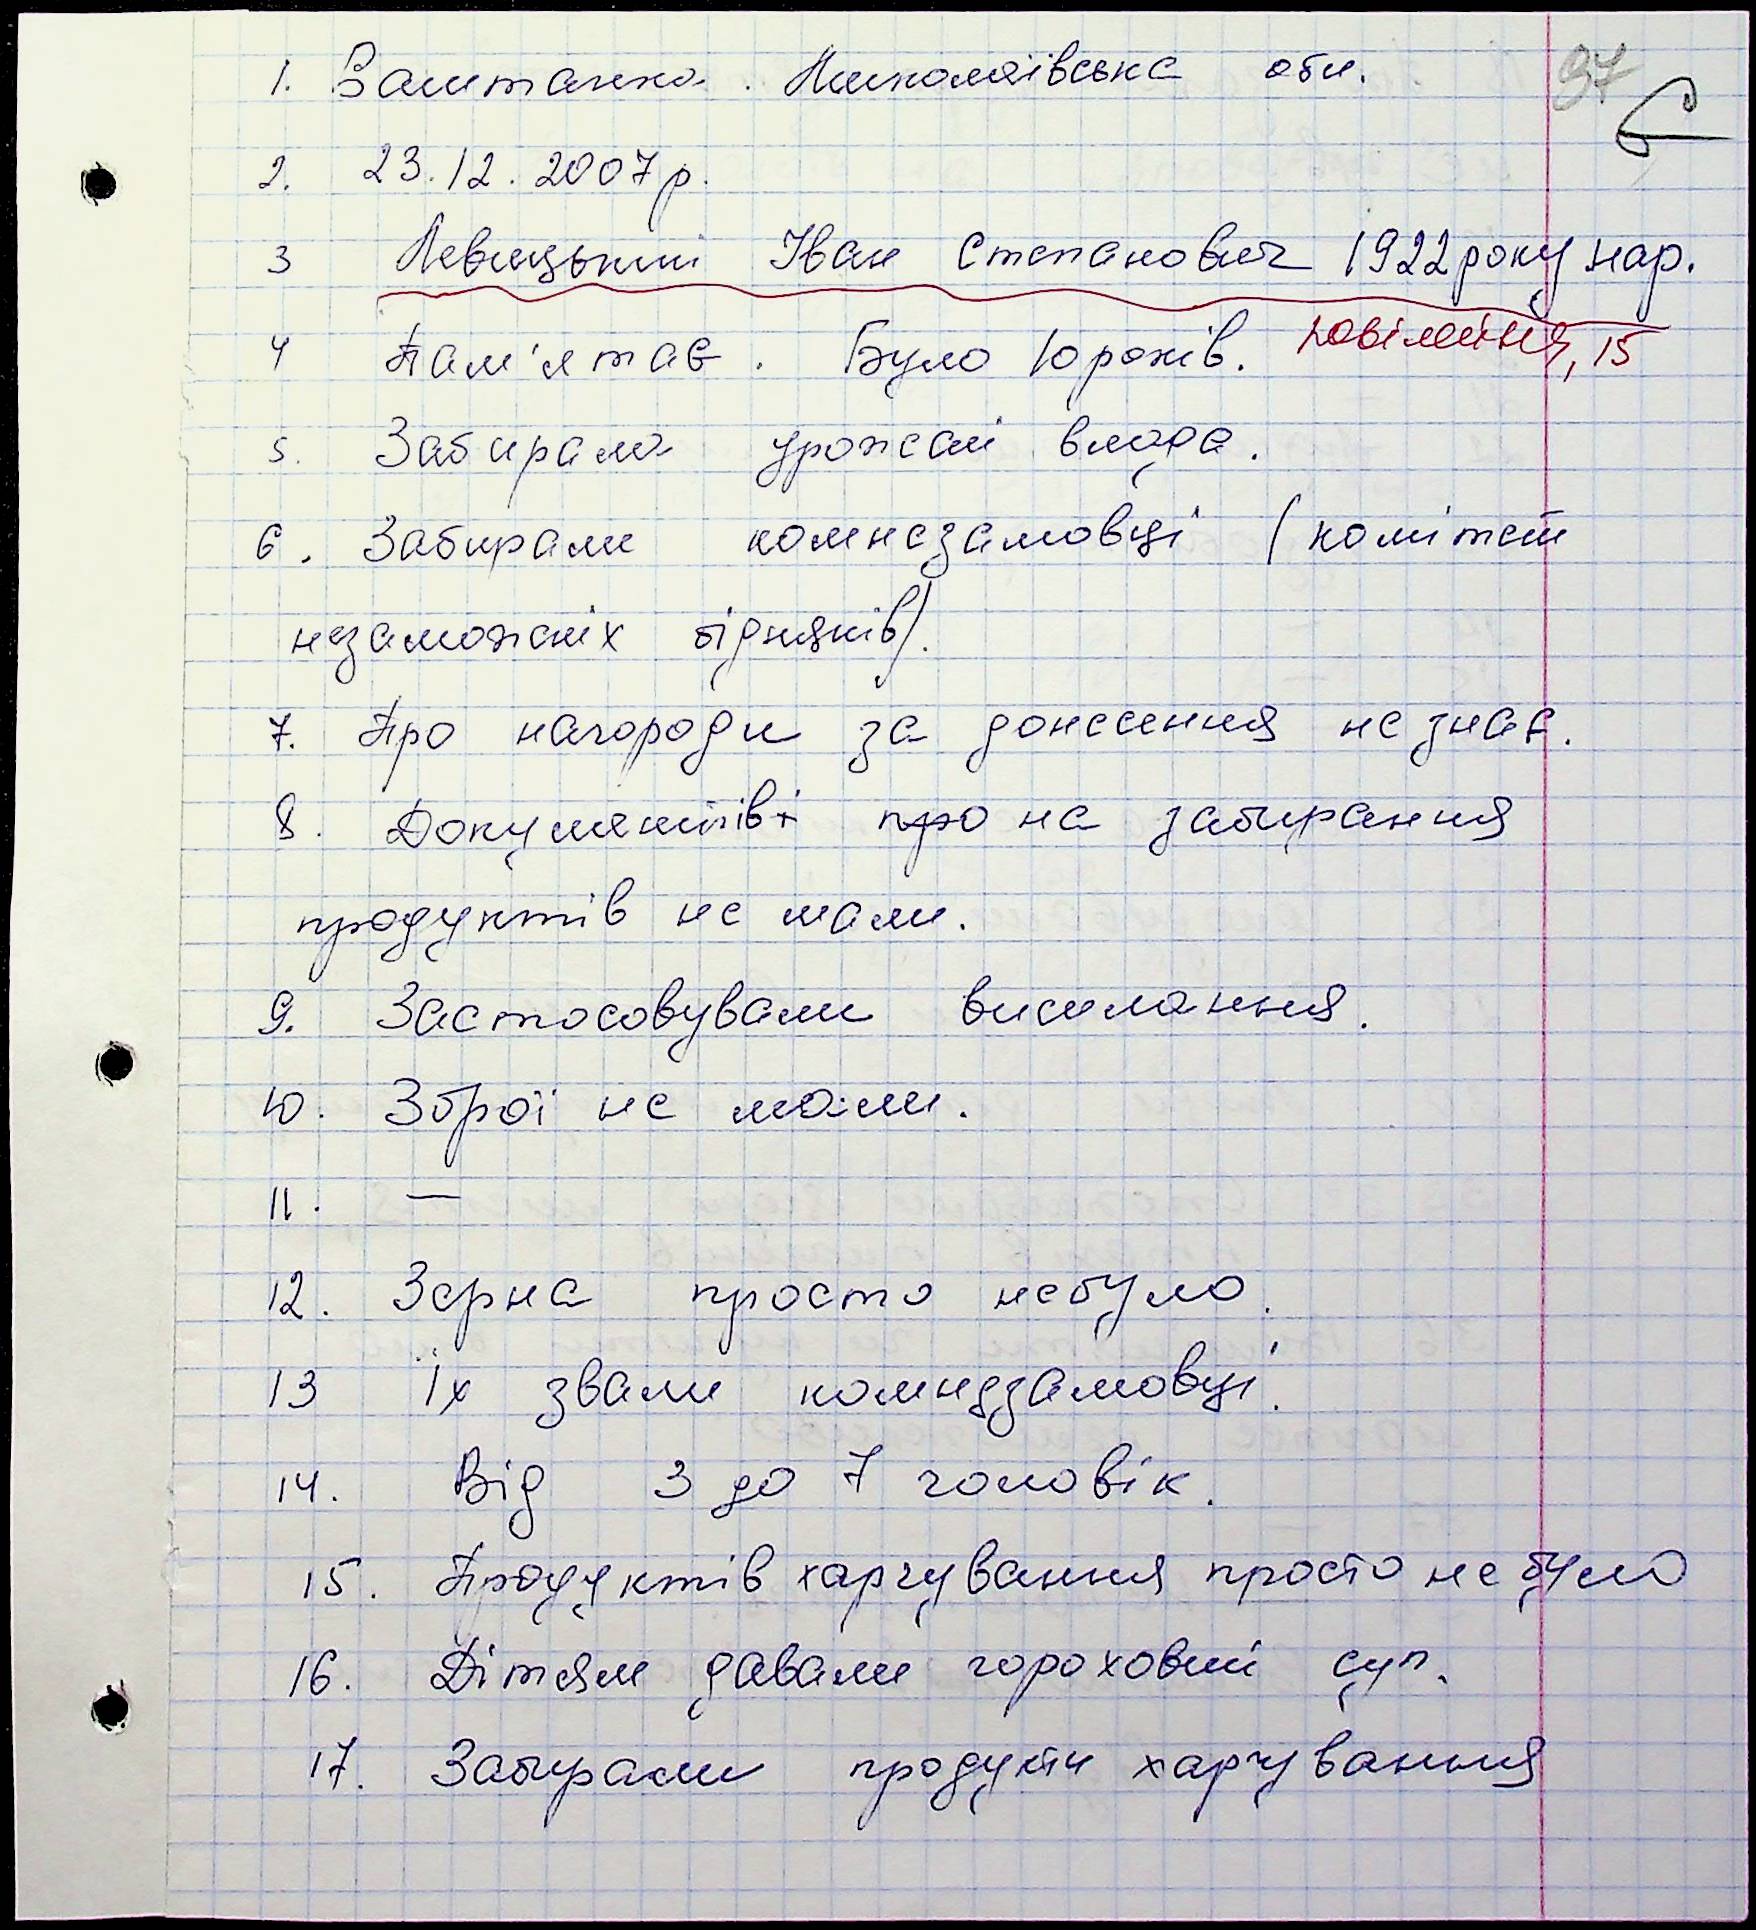 97
1. Баштанка. Миколаївська обл.
2. 23.12.2007р.
3 Левицький Іван Степанович 1922року нар.
4 Пам'ятає. Було 10 років.
15
5. Забирала урожай влада.
6. Забирали комнезамовці (комітет
незаможніх бідняків).
7. Про нагороди за донесення не знає.
8. Документів про на забирання
продуктів не мали.
9. Застосовували висилання.
10. Зброї не мали.
11. —
12. Зерна просто небуло.
13 Їх звали комнезамовці.
14. Від 3 до 7 чоловік.
15. Продуктів харчування просто не було
16. Дітям давали гороховий суп.
17. Забирали продукти харчування